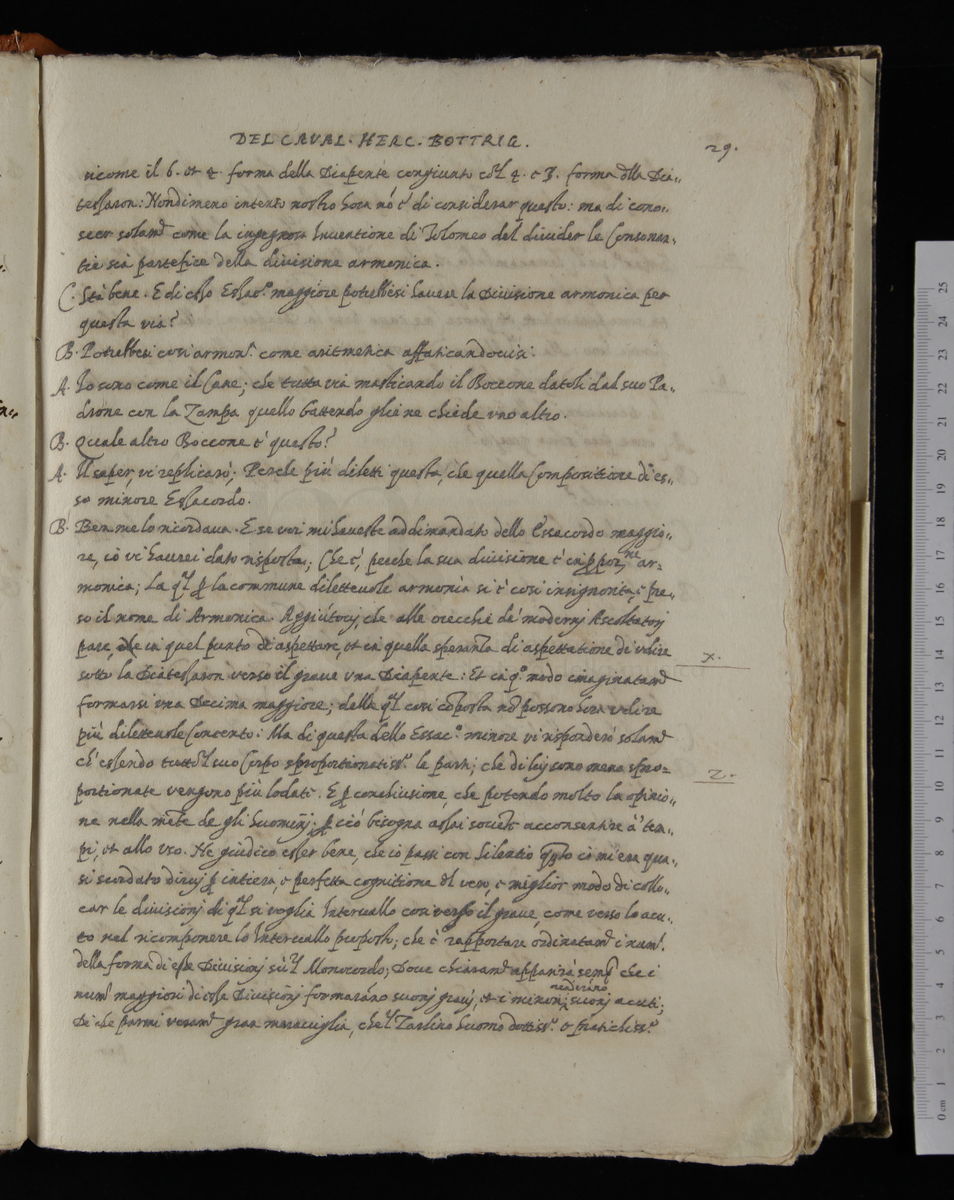 DEL CAVAL. HERC. BOTTRIG.
29.
sicome il 6. et 4. forma della Diapente congiunto co'l 4. e 3. forma della Dia-
tessaron: Nondimeno intento nostro hora nó é di considerar questo: ma di cono-
scer solam.te come la ingegnosa Inventione di Tolomeo del divider le Consonan-
tie sia partefice della divisione armonica.
C. Stà bene. E di esso Essac.o maggiore potrebbesi havere la Divisione armonica per
questa via?
B. Potrebbesi cosi armon.a come aritmetica affaticandovisi.
A. Io sono come il Cane; che tutta via masticando il Boccone datoli dal suo Pa-
drone con la Zampa quello battendo gliene chiede uno altro.
B. Quale altro Boccone é questo?
A. Il saper, vi replicarò; Perche piú diletti questa, che quella Compositione di es-
so minore Essacordo.
B. Ben me lo ricordava. E se voi mi haveste addimandato dello Essacordo maggio-
re, iò vi haurei dato risposta; Che é, perche la sua divisione é in ꝓpor.ne ar-
monica; La q.l ꝑ la commune dilettevole armonia si é cosi insignorita, pre-
so il nome di Armonica. Aggiútovj che alle orecchie da' modernj Ascoltatorj
pare, che in quel punto di aspettare, et in quella speranza di aspettatione di udire
sotto la Diatessaron verso il grave una Diapente: Et in q.o modo imaginatam.te
x.
formarsi una Decima maggiore; della q.l cosi cóposta nó possono hora udire
piú dilettevole Concento: Ma di questa dello Essac.o minore vi risponderó solam.te
ch'essendo tutto'l suo Corpo sproportionatiss.o le parti; che di lej sono meno spro-
z.
portionate vengono piú lodati. E ꝑ conclusione, che potendo molto la opinio-
ne nella méte de gli huominj; ꝑ ció bisogna assai acconsentire à' tem-
pi, et allo uso. Ne giudico esser bene, che iò passi con silentio q̃llo ció mi era qua-
si scordato dirvj ꝑ intiera, e perfetta cognitione del vero, e miglior modo di collo-
car le divisionj di q.l si voglia Intervallo cosi verso il grave, come verso lo acu-
to nel ricomponere lo Intervallo proposto; che é rapportare ordinatam.te i num.i
della forma di esse Divisionj sú'l Monocordo; Dove chiaram.te appanirà semp̃ che i
numi maggiori di esse Divisionj formaráno suonj gravj, et i minori renderáno suonj acuti;
Di che parmi veram.te gran maraviglia, che'l Zarlino huomo dottiss.o e pratichiss.o